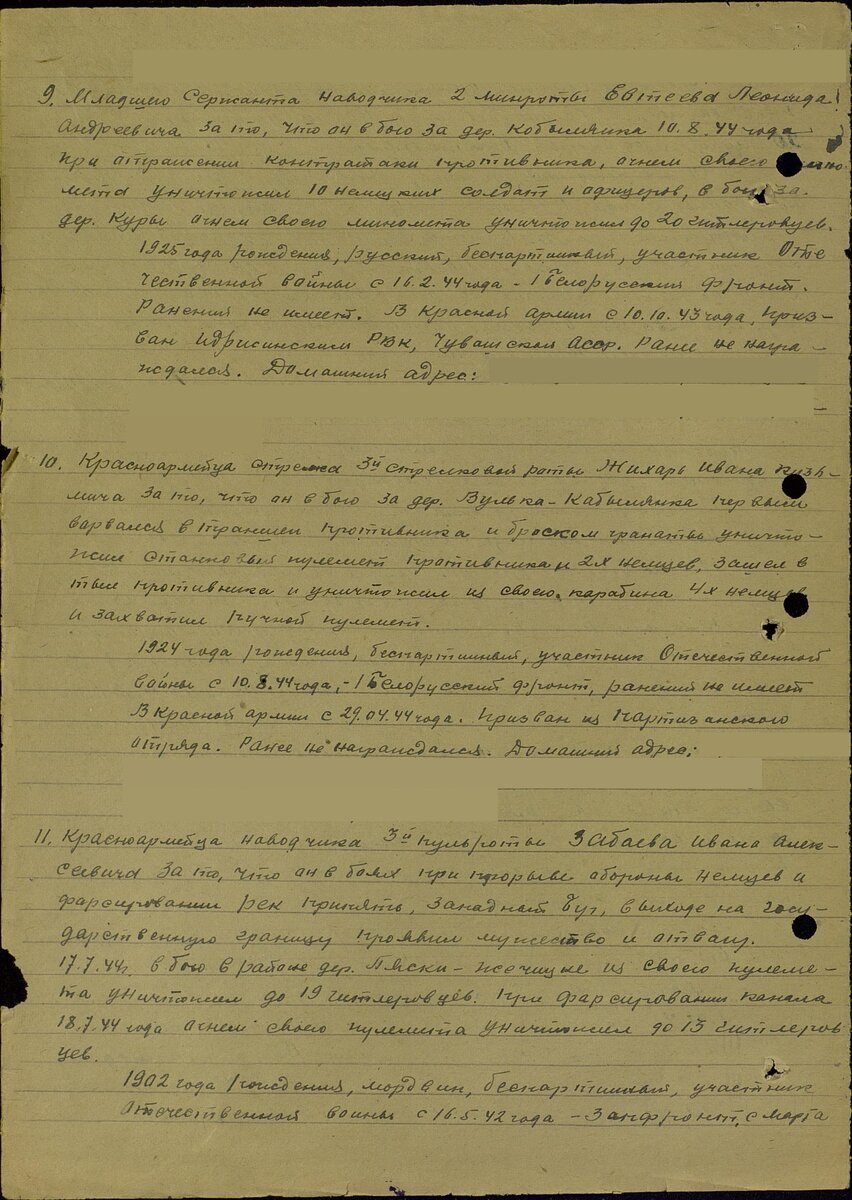 9. Младшего Сержанта наводчика 2 минроты Евтеева Леонида
Андреевича за то, что он в бою за дер. Кобылянка 10.8.44 года
при отражении контратаки противника, огнем своего мино-
мета уничтожил 10 немецких солдат и офицеров, в бою за
дер. Куры огнем своего миномета уничтожил до 20 гитлеровцев.
1925 года рождения, русский, беспартийный, участник Оте
чественной войны с 16.2.44 года - 1 Белорусский фронт.
Ранения не имеет. В Красной армии с 10.10.43 года, приз-
ван РВК, Чувашской Асср. Ранее не награ-
ждался. Домашний адрес:
10. Красноармейца стрелка 3й стрелковой роты Жихарь Ивана Кузь-
мича за то, что он в бою за дер. Вулька-Кабылянка первым
ворвался в траншеи противника и броском гранаты уничто-
жил станковый пулемет противника и 2х немцев, зашел в
тыл противника и уничтожил из своего карабина 4х немцев
и захватил ручной пулемет.
1924 года рождения, беспартийный, участник Отечественной
войны с 10.8.44 года, - 1 Белорусский фронт, ранений не имеет
В Красной армии с 29.04.44 года. Призван из Партизанского
отряда. Ранее не награждался. Домашний адрес:
11. Красноармейца наводчика 3й пульроты Забаева Ивана Алек-
сеевича за то, что он в боях при прорыве обороны немцев и
фарсировании рек Припять, Западный Буг, выходе на госу-
дарственную границу проявил мужество и отвагу.
17.7.44г. в бою в районе дер. Пяски - из своего пулеме-
та уничтожил до 19 гитлеровцев. При фарсировании канала
18.7.44 года огнем своего пулемета уничтожил до 13 гитлеров
цев.
1902 года рождения, мордвин, беспартийный, участник
Отечественной войны с 16.5.42 года - Запфронт, с марта